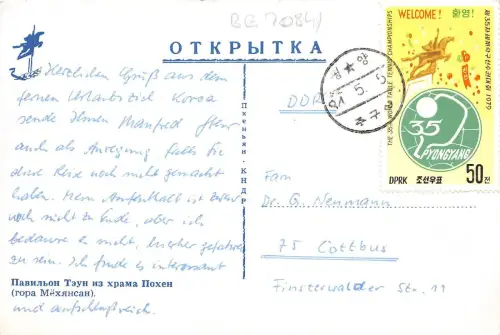 BE 7084
ОТКРЫТКА
Herzlichen Gruß aus dem
fernen Urlaubsziel Korea
sende Ihnen Manfred
auch als Anregung falls Sie
diese Reise noch nicht gemacht
haben. Mein Aufenthalt ist zwar
noch nicht zu Ende, aber ich
bedaure es nicht, hierher gefahren
zu sein. Ich finde es interessant
und aufschlußreich.
Павильон Таун из храма Похен
(гора Мёхянсан).
Пхеньян · КНДР
DDR
평★양
21 5. 5
WELCOME! 환영!
THE 35TH WORLD TABLE TENNIS CHAMPIONSHIPS
제35차세계탁구선수권대회 1979
35
PYONGYANG
DPRK 조선우표 50전
Fam
Dr. G. Neumann
75 Cottbus
Finsterwalder Str. 11